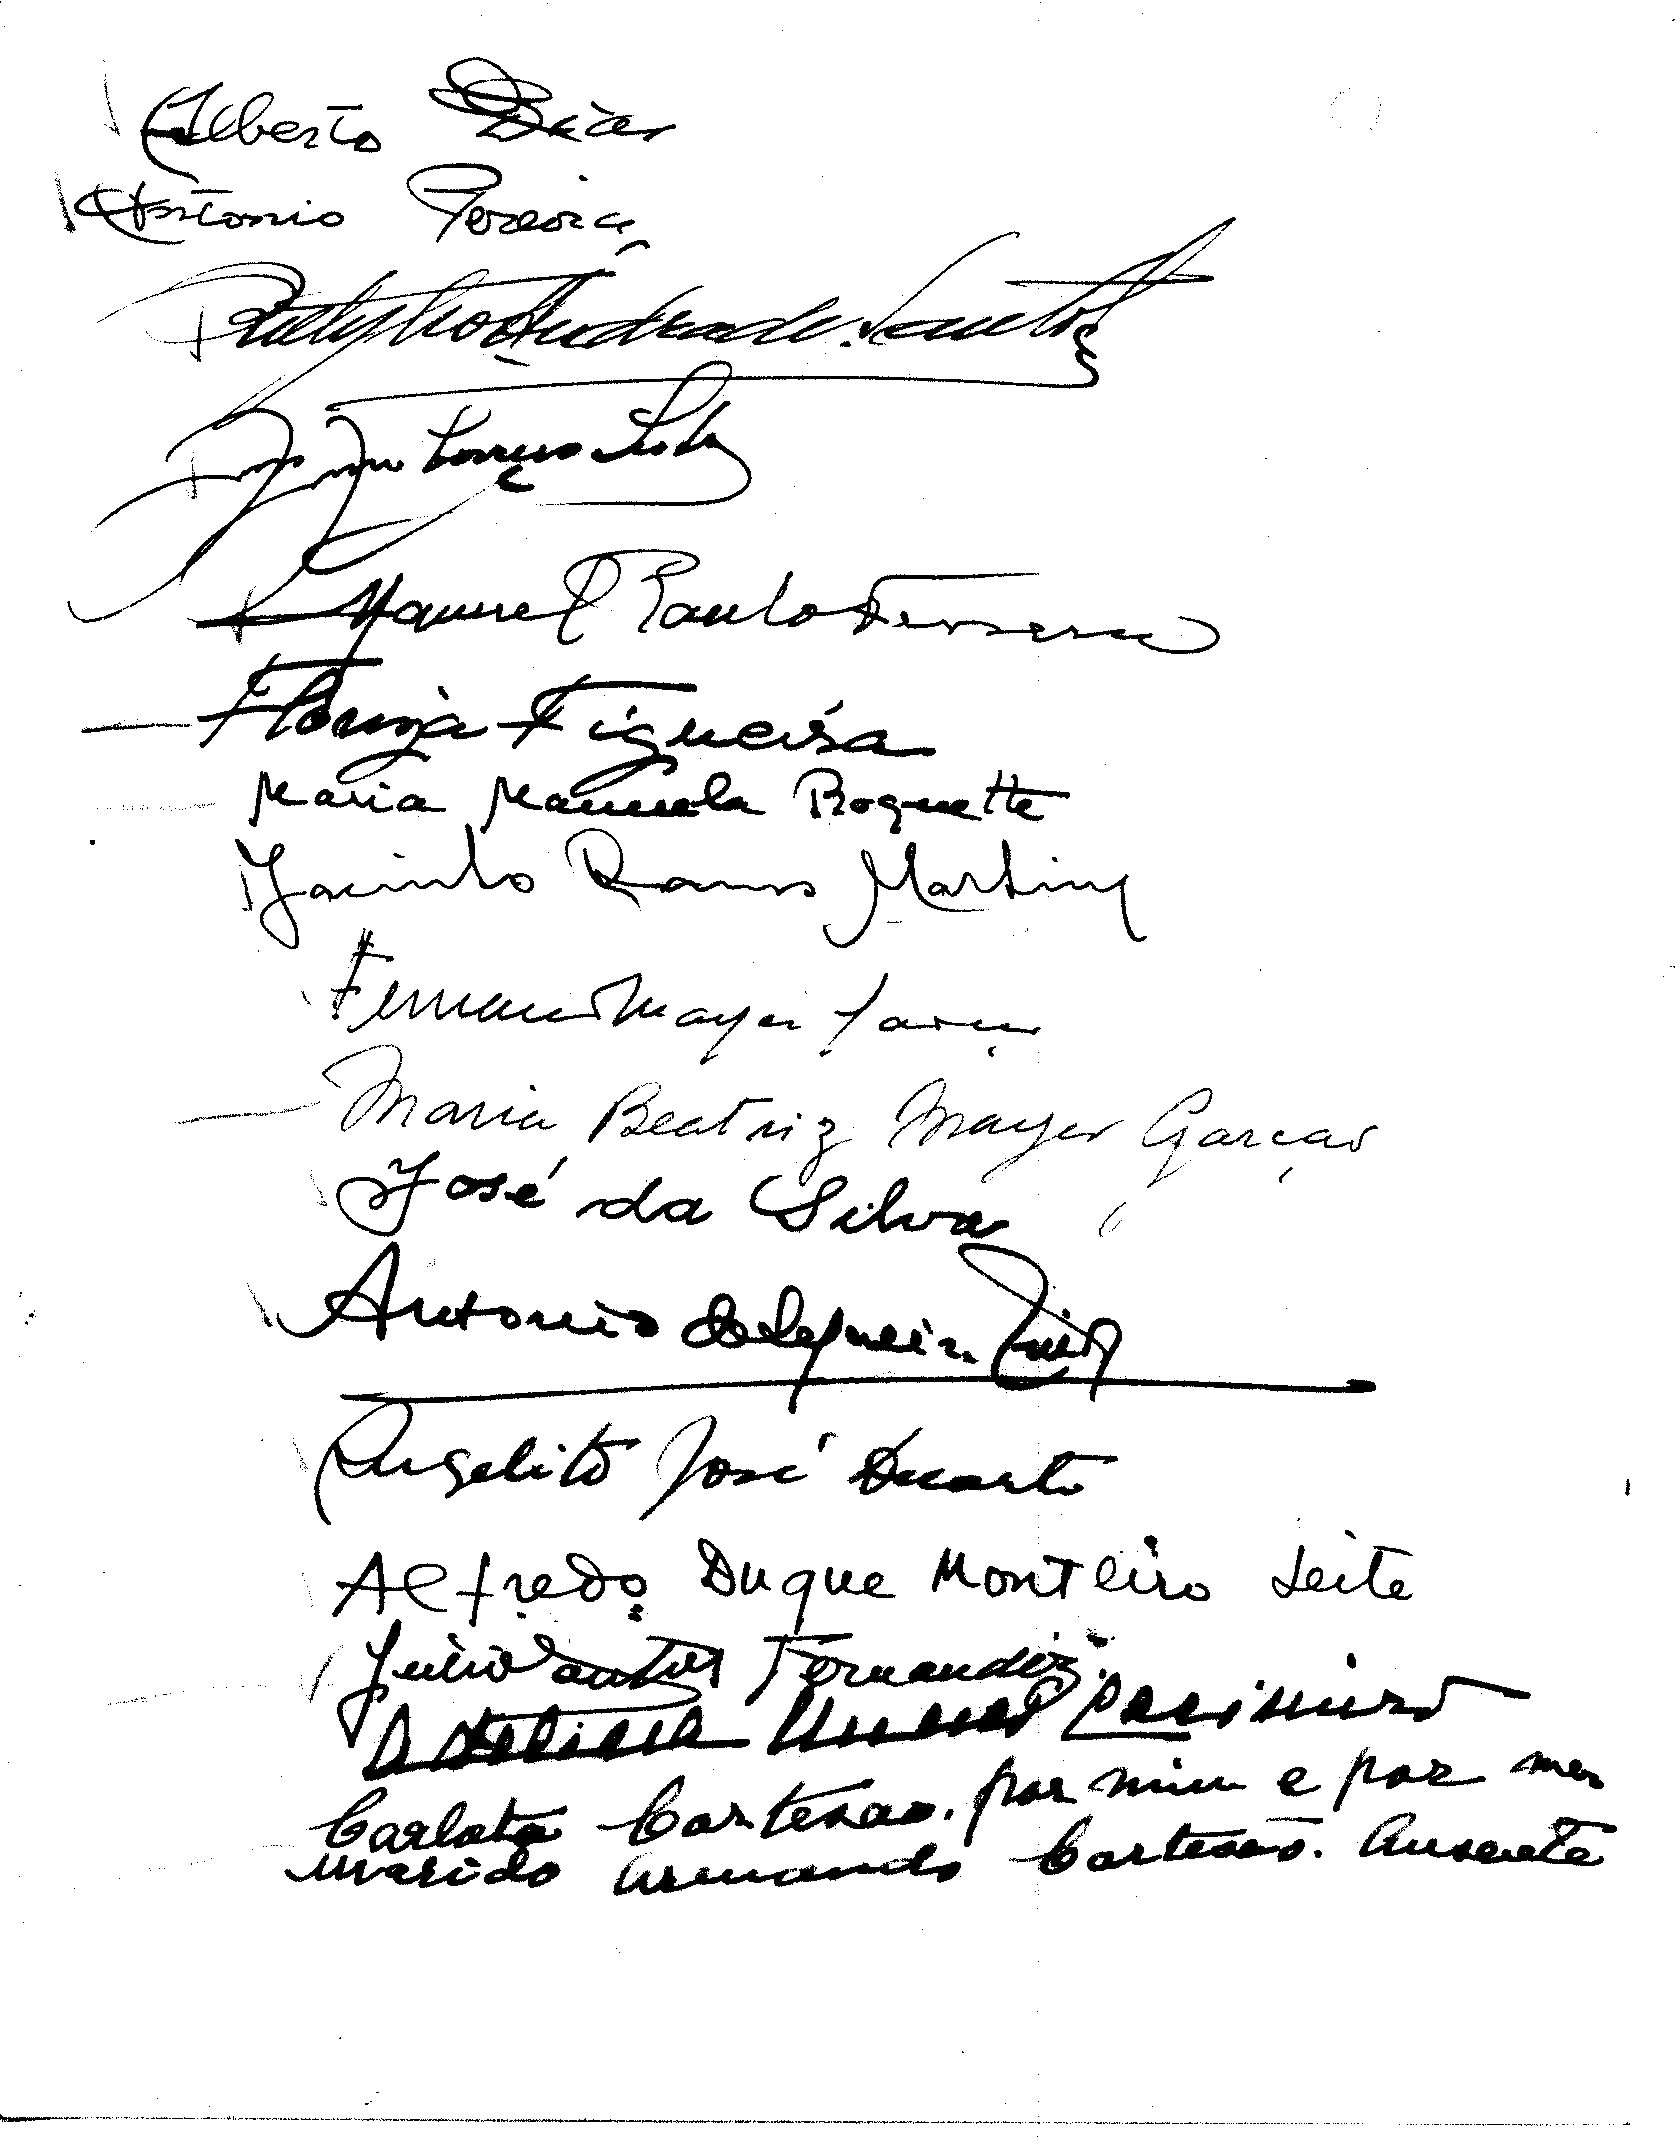 Alberto Dias
Antonio Pereira
Andrade Santos
Lourenço
Manuel Paulo Ferreira
Figueira
Maria Manuela Roquette
Jacinto Ramos Martins
Fernando Mayer Garção
Maria Beatriz Mayer Garção
José da Silva
Antonio de Sequeira
Angelito José Duarte
Alfredo Duque Monteiro Leite
Julio Santos Fernandes
Casimiro
Carlota Cortesao. por mim e por meu
marido Armando Cortesão. Ausente